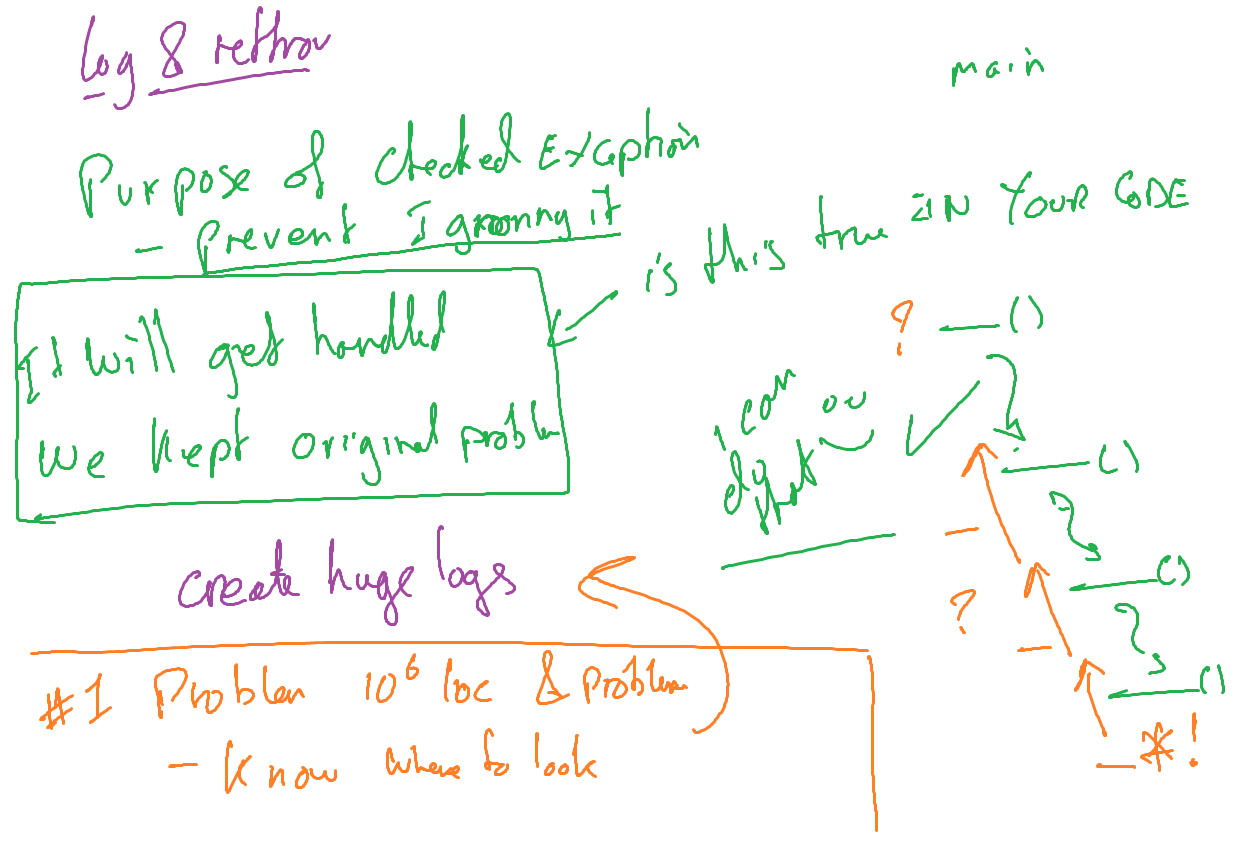 log & rethrow
main
Purpose of Checked Exception
- Prevent Ignoring it
is this true IN YOUR CODE
It will get handled
We kept original problem
? ()
i can
()
create huge logs
()
?
()
#1 Problem 10⁶ loc & Problem
- Know where to look
- *!